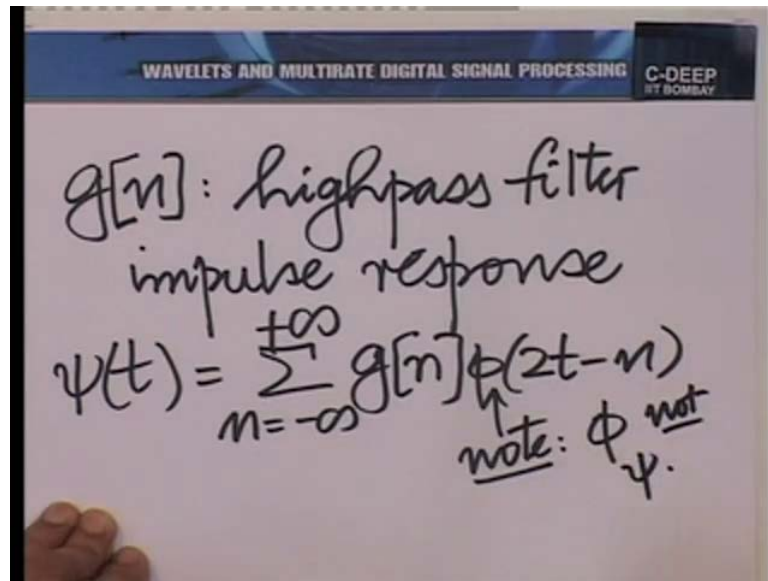 WAVELETS AND MULTIRATE DIGITAL SIGNAL PROCESSING
C-DEEP
IIT BOMBAY
g[n]: highpass filter
impulse response
+∞
ψ(t) = Σ g[n]ϕ(2t-n)
n=-∞
note: ϕ not
ψ.